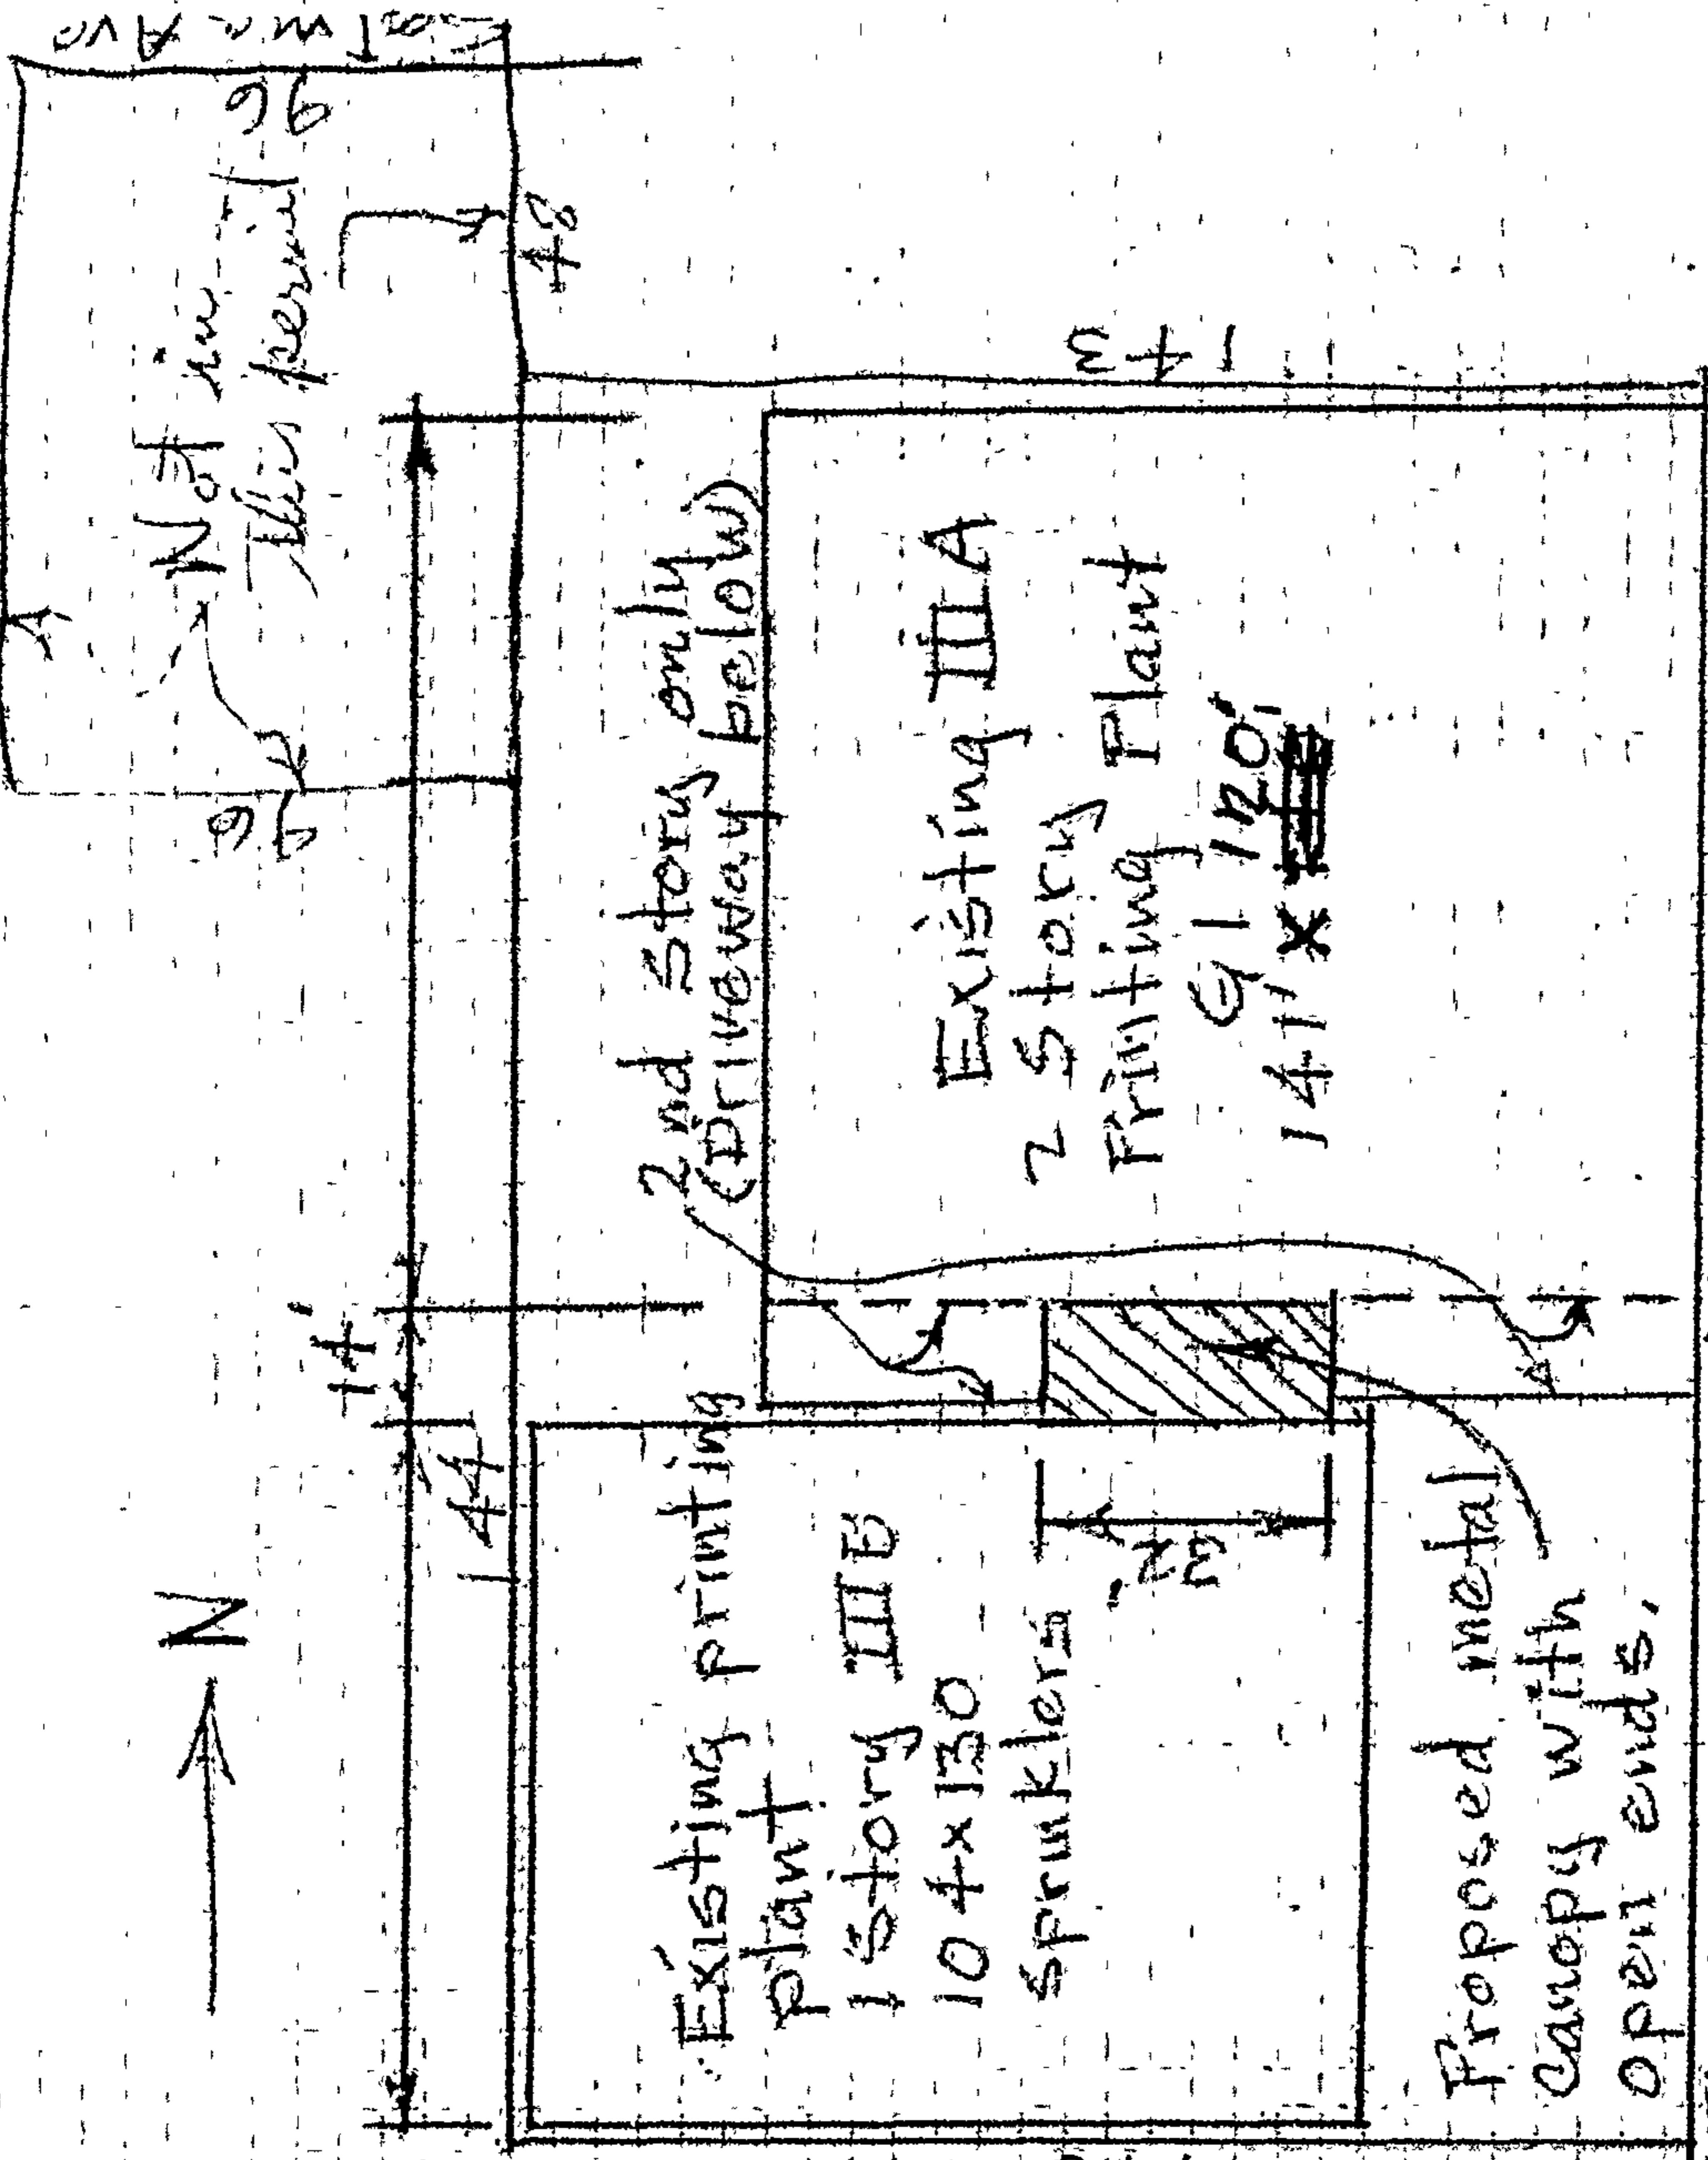 Not in
This permit
96
48
96
143
14'
144
N
2nd story only
(Driveway below)
Existing III A
2 story
Printing Plant
91 120'
141' x
Existing printing
plant
1 story III B
104 x 130
sprinklers
32'
Proposed metal
canopy with
open ends.